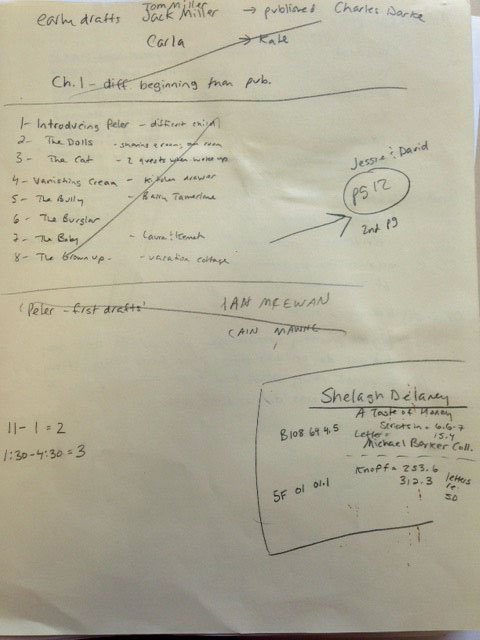 early drafts
Tom Miller
Jack Miller → published Charles Darke
Carla → Kate
Ch. 1 - diff. beginning than pub.
1- Introducing Peter - difficult child
2- The Dolls - sharing a room, own room
3- The Cat - 2 guests when wakes up
4- Vanishing Cream - kitchen drawer
5- The Bully - Barry Tamerlane
6- The Burglar
7- The Baby - Laura & Kenneth
8- The Grown up - vacation cottage
Jessie & David
pg 12
2nd pg
'Peter - first drafts'
IAN MCEWAN
CAIN MAWNE
Shelagh Delaney
A Taste of Honey
B108 64 4.5
Letter = 15.4
Michael Barker Coll.
Knopf = 253.6
312.3
letters re. SD
5F 01 01.1
11 - 1 = 2
1:30-4:30 = 3